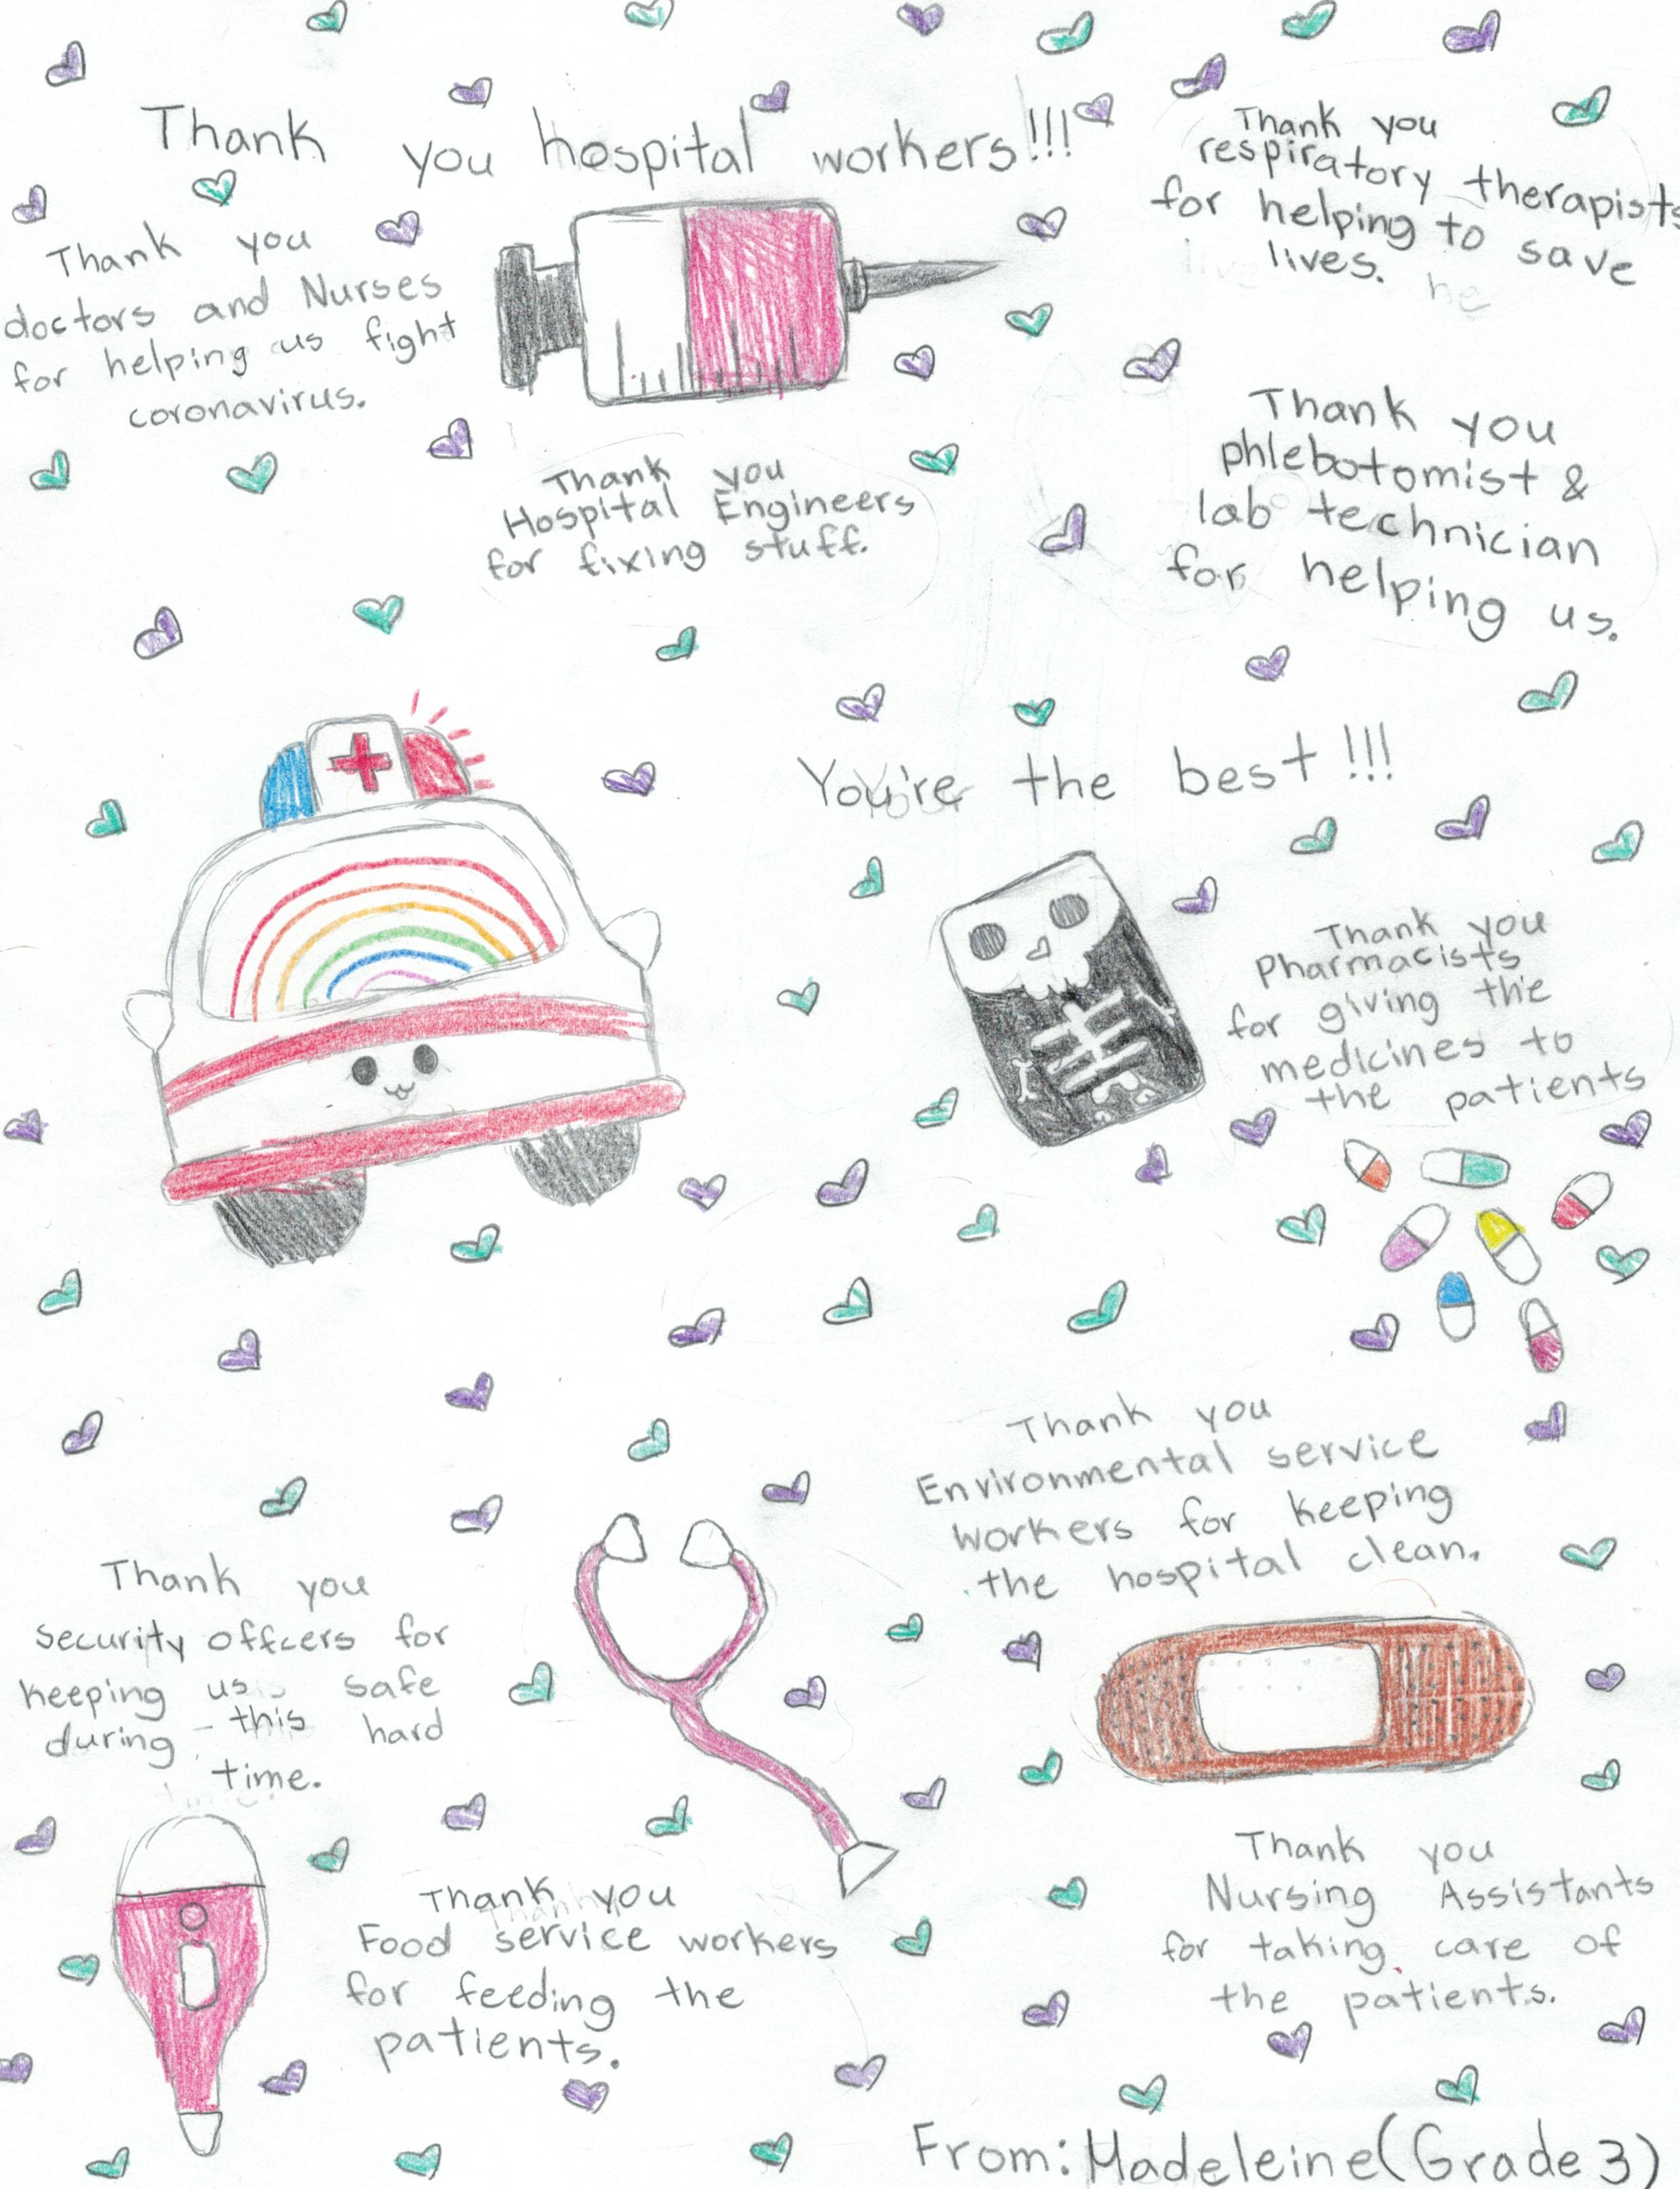 Thank you hospital workers!!!
Thank you
doctors and Nurses
for helping us fight
coronavirus.
Thank you
respiratory therapists
for helping to save
lives.
Thank you
Hospital Engineers
for fixing stuff.
Thank you
phlebotomist &
lab technician
for helping us.
You're the best!!!
Thank you
Pharmacists
for giving the
medicines to
the patients
Thank you
Environmental service
workers for keeping
the hospital clean.
Thank you
security offcers for
keeping us safe
during this hard
time.
Thank you
Food service workers
for feeding the
patients.
Thank you
Nursing Assistants
for taking care of
the patients.
From: Madeleine (Grade 3)